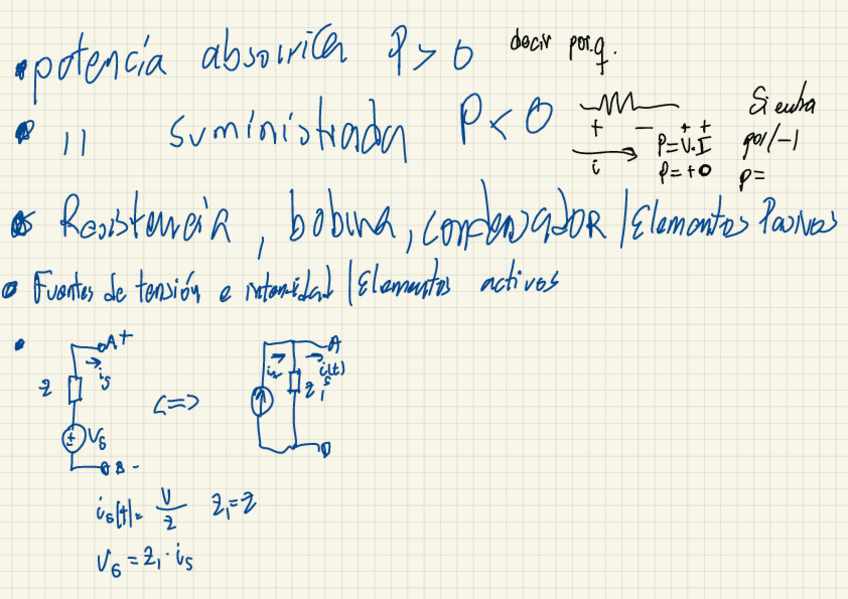 • potencia absorvida P > 0 decir por.q.
• 11 suministrada P < 0
+ - + +
i P = V.I
P = + 0
Si entra
por / -1
P =
• Resistencia, bobina, condensador / Elementos Pasivos
• Fuentes de tensión e intensidad / Elementos activos
•
A+
is
Z
VG
B -
<=>
A
i(t)
Z1
iG(t) = V/Z Z1 = Z
VG = Z1 · is